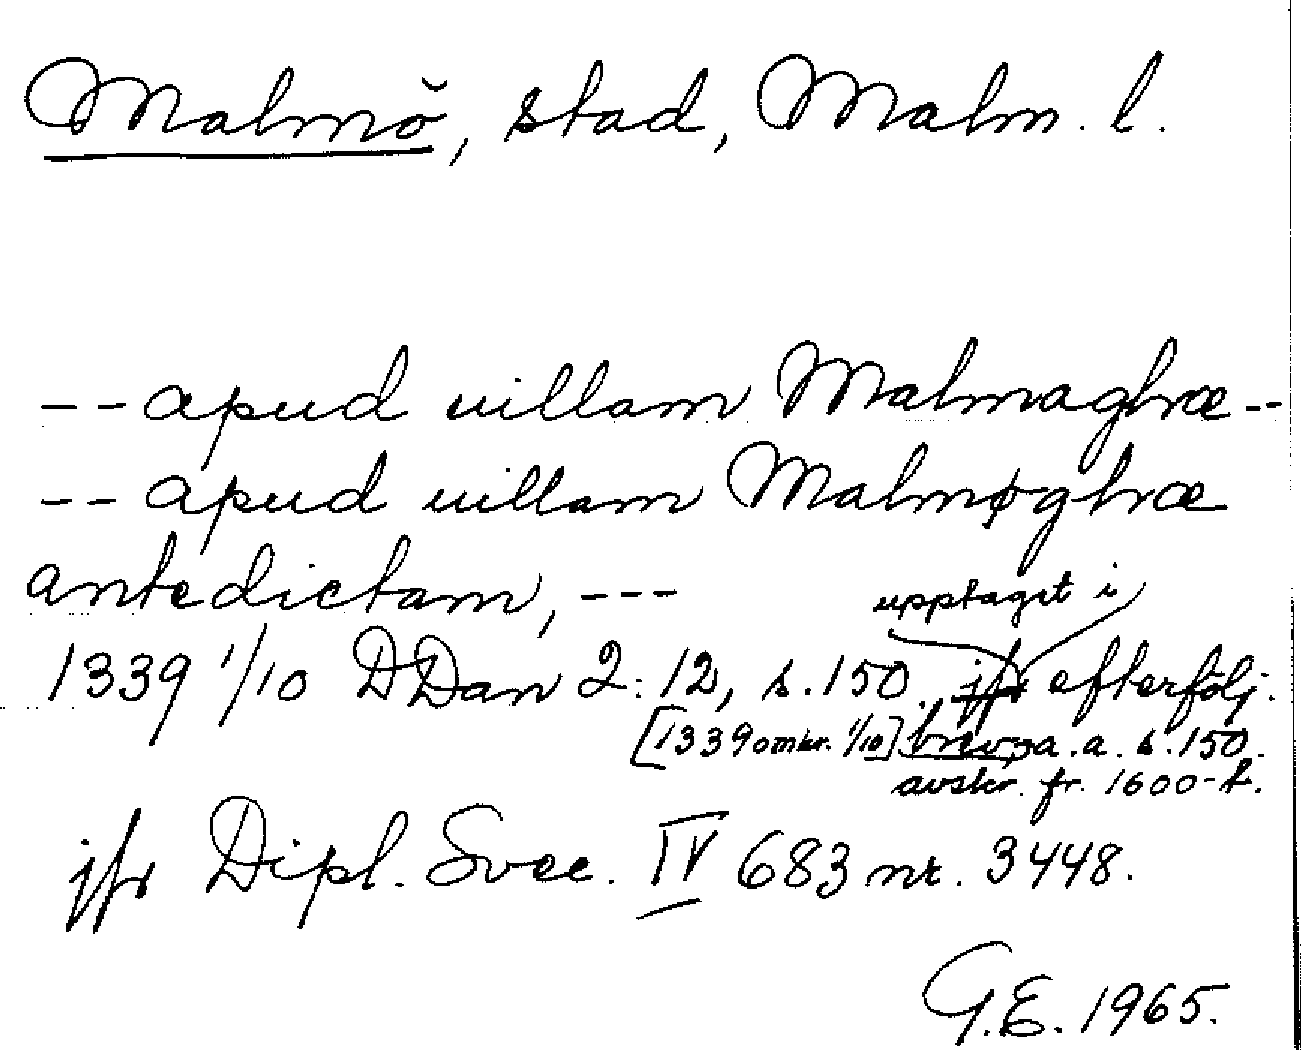 Malmö, stad, Malm. l.
-- apud uillam Malmaghæ --
-- apud uillam Malmøghæ
antedictam, ---
upptaget i
1339 1/10 DDan 2:12, s. 150. jfr efterfölj.
[1339 omkr. 1/10] brev, a. a. s. 150.
avskr. fr. 1600-t.
jfr Dipl. Svec. IV 683 nr. 3448.
G.E. 1965.